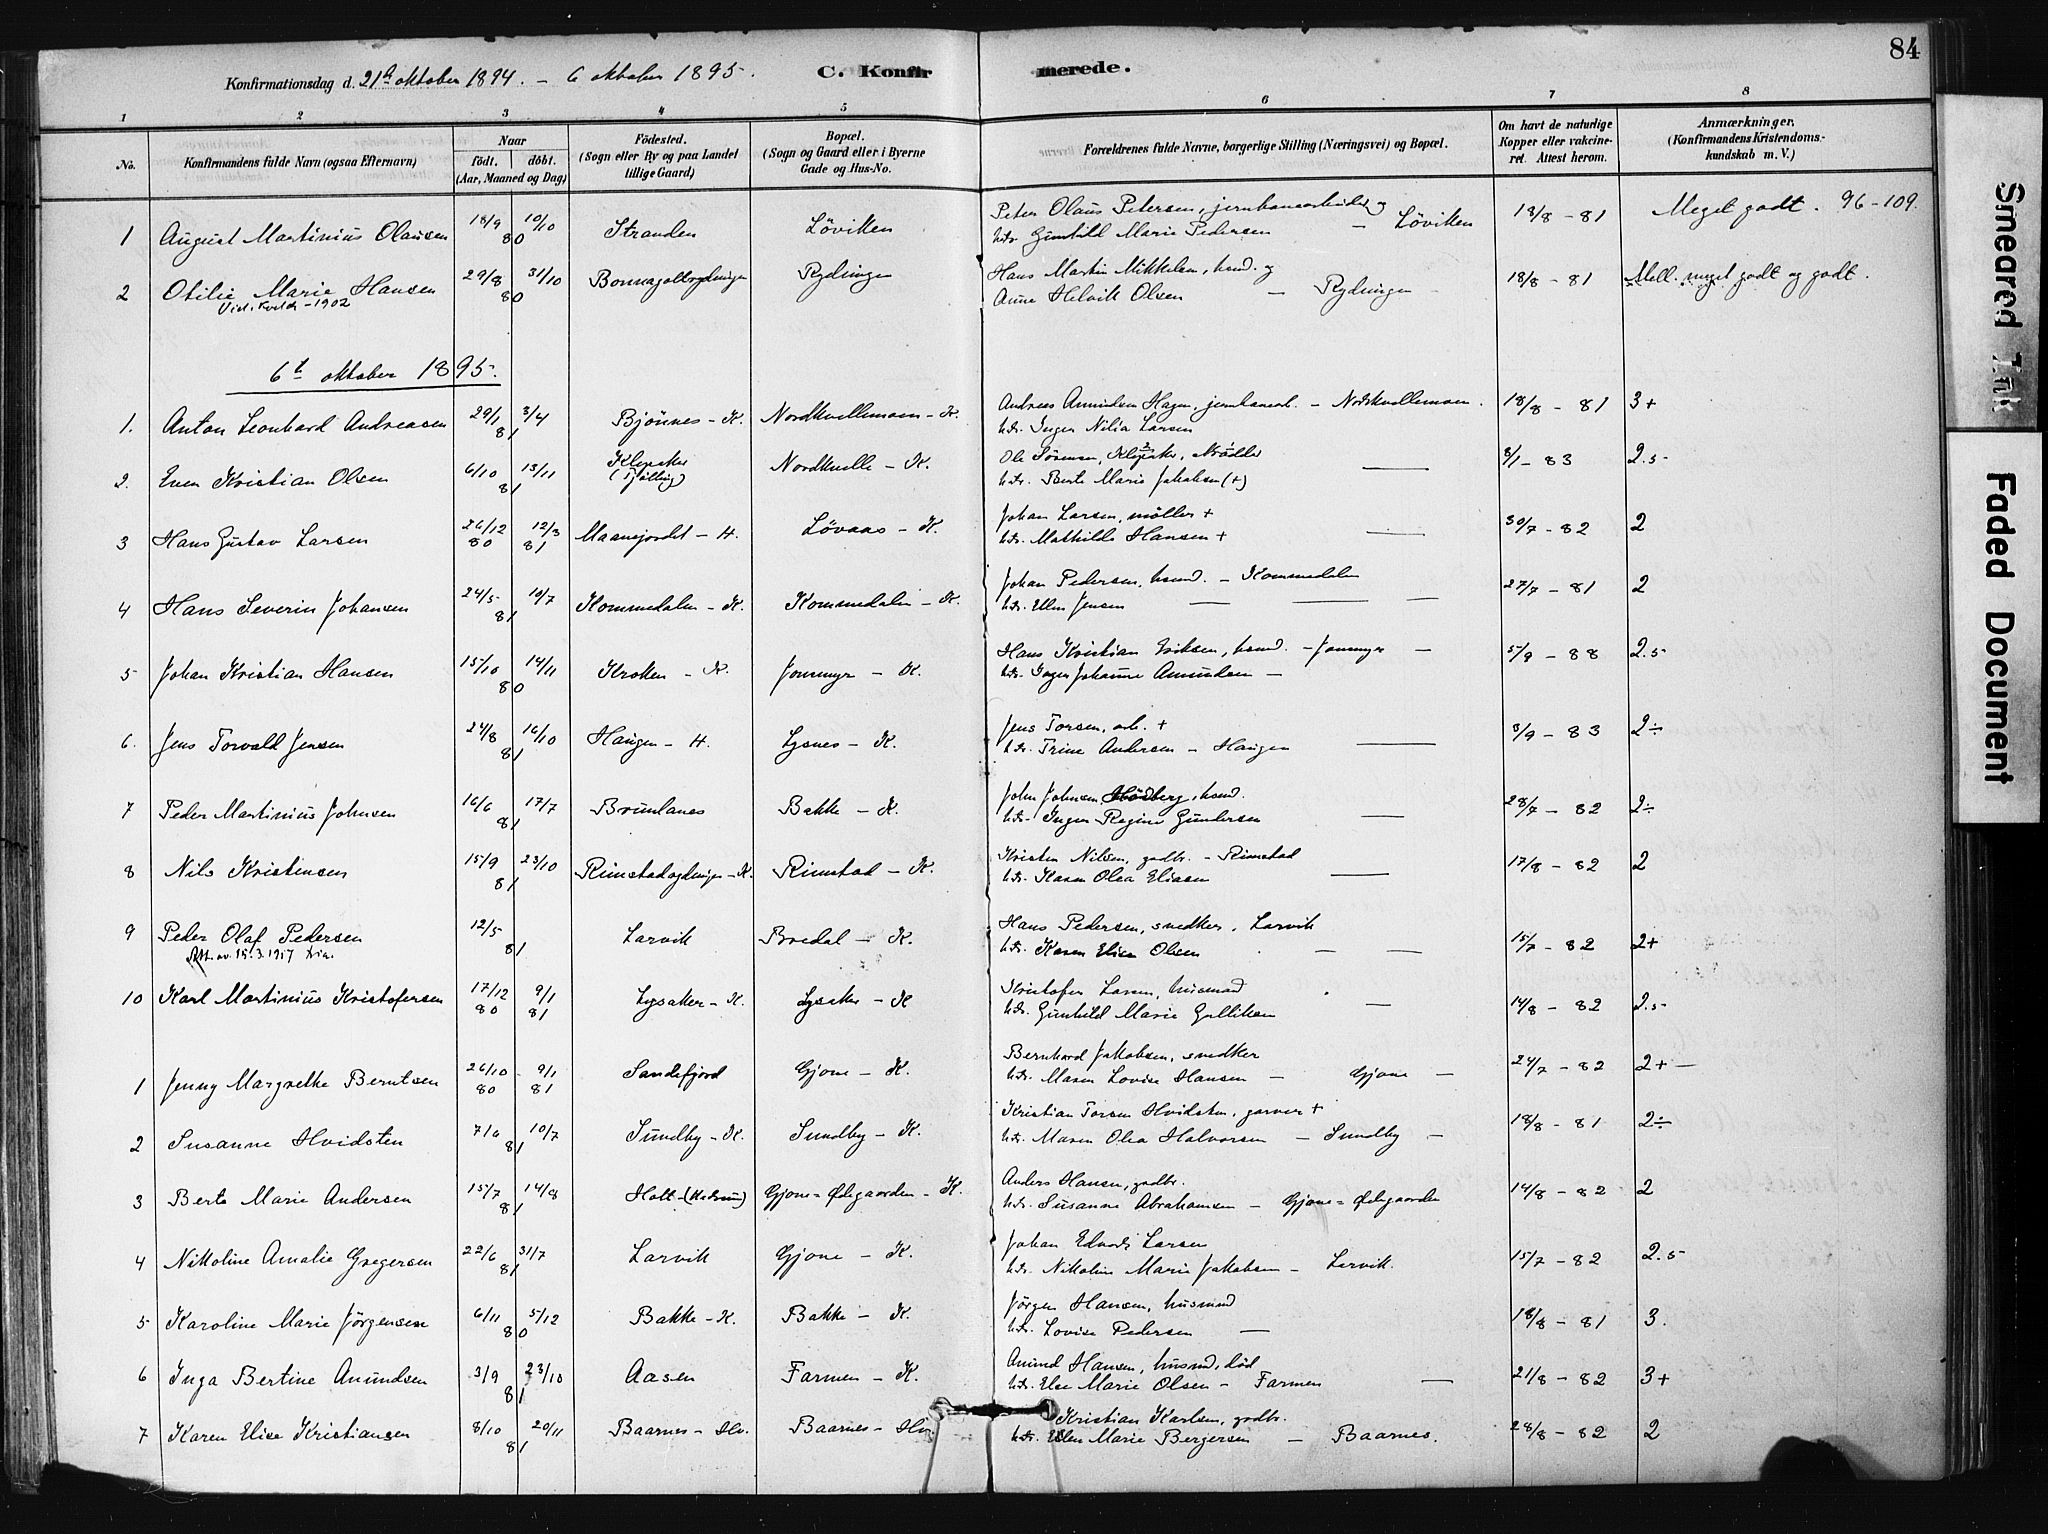 84
Konfirmationsdag d. 21de oktober 1894. – 6 oktober 1895. C. Konfirmerede.
1 2 3 4 5 6 7 8
No. Konfirmandens fulde Navn (ogsaa Efternavn) Naar født. døbt. (Aar, Maaned og Dag) Fødested. (Sogn eller By og paa Landet tillige Gaard) Bopæl. (Sogn og Gaard eller i Byerne Gade og Hus-No. Forældrenes fulde Navne, borgerlige Stilling (Næringsvei) og Bopæl. Om havt de naturlige Kopper eller vakcineret. Attest herom. Anmærkninger. (Konfirmandens Kristendomskundskab m. V.)
1 August Martinius Olausen 18/9 10/10 80 Stranden Løviken Peter Olaus Petersen, jernbanearbeider og 18/8 – 81 Meget godt. 96–109.
htr. Gunhild Marie Pedersen – Løviken
2 Otilie Marie Hansen 29/8 31/10 80 Rydningen Hans Martin Mikkelsen, husmd. og 18/8 – 81 Mell. meget godt og godt.
1902 Anne Helvik Olsen – Rydningen
6te oktober 1895.
1. Anton Leonhard Andreasen 29/1 3/4 81 Bjønnes – K. Nordkvellemoen – K. Andreas Amundsen Hagen, jernbanearb. – Nordkvellemoen. 18/8 – 81 3+
htr. Inger Nilia Larsen
2. Even Kristian Olsen 6/10 13/11 81 Klepaker (Tjølling) Nordkvelle – K. Ole Sørensen, Klepaker, Møller — 8/1 – 83 2.5
htr. Berte Marie Jakobsen (+)
3 Hans Gustav Larsen 26/12 80 12/3 81 Maanejordet – H. Løvaas – K. Johan Larsen, møller + 30/7 – 82 2
htr. Mathilde Hansen + —
4 Hans Severin Johansen 24/5 10/7 81 Kommedalen – K. Kommedalen – K. Johan Pedersen, husmd. – Kommedalen 27/7 – 81 2
htr. Ellen Jensen — — —
5 Johan Kristian Hansen 15/10 14/11 80 Kroken – K. Jonsmyr – K. Hans Kristian Eriksen, husmd. – Jonsmyr – 5/9 – 88 2.5
htr. Inger Johanne Amundsen –
6. Jens Torvald Jensen 24/8 16/10 81 Haugen – H. Lysnes – K. Jens Torsen, arb. + 3/9 – 83 2÷
htr. Trine Andersen – Haugen —
7 Peder Martinius Johnsen 16/6 17/7 81 Brunlanes Bakke – K. John Johnsen Hødberg, husmd. 28/7 – 82 2÷
htr. Inger Regine Gundersen —
8 Nils Kristensen 15/9 23/10 81 Rimstadrydningen – K. Rimstad – K. Kristen Nilsen, gadbr. – Rimstad 17/8 – 82 2
htr. Karen Olea Eliasen —
9 Peder Olaf Pedersen 12/5 81 Larvik Bredal – K. Hans Pedersen, snedker, Larvik 15/7 – 82 2+
Att. av 15.3.1917 htr. Karen Elise Olsen – —
10 Karl Martinius Kristofersen 17/12 80 9/1 81 Lysaker – K. Lysaker – K Kristofer Larsen, husmand 14/8 – 82 2.5
htr. Gunhild Marie Gulliksen —
1 Jenny Margrethe Berntsen 26/10 80 9/1 81 Sandefjord Gjone – K. Bernhard Jakobsen, snedker 24/7 – 82 2+ –
htr. Maren Lovise Hansen – Gjone –
2 Susanne Hvidsten 7/6 10/7 81 Sundby – K. Sundby – K. Kristian Torsen Hvidsten, garver + 18/8 – 81 2÷
htr. Maren Olea Halvorsen – Sundby –
3 Berte Marie Andersen 15/7 14/8 81 Holt – (Hedrum) Gjone = Ødegaarden – K. Anders Hansen, gadbr. 14/8 – 82 2
htr. Susanne Abrahamsen – Gjone = Ødegaarden
4 Nikoline Amalie Gregersen 22/6 31/7 81 Larvik Gjone – K. Johan Edvard Larsen 15/7 – 82 2.5
htr. Nikoline Marie Jakobsen – Larvik.
5 Karoline Marie Jørgensen 6/11 5/12 80 Bakke – K. Bakke – K. Jørgen Hansen, husmand 18/8 – 81 3.
htr. Lovise Pedersen –
6 Inga Bertine Amundsen 3/9 23/10 81 Aasen Farmen – K. Amund Hansen, husmd, død 21/8 – 82 3+
htr. Else Marie Olsen – Farmen —
7 Karen Elise Kristiansen 8/10 20/11 81 Baarnes – Hv. Baarnes – Hv. Kristian Karlsen, gadbr. 28/8 – 82 2
htr. Ellen Marie Bergersen – Baarnes.
Smeared Ink
Faded Document